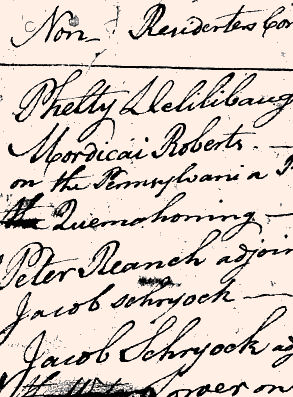 Non Residentes Con
Phelty
Mordicai Roberts
on the Pennsylvania
the Quemahoning
Peter Reanch adjoin
Jacob Schryock
Jacob Schryock ad
over on